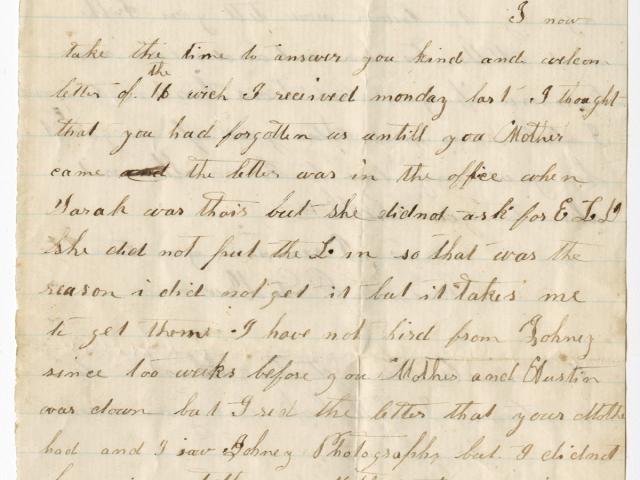 I now
take the time to answer you kind and welcom
letter of the 16 wich I received monday last I thought
that you had forgotten us untill you Mother
came and the letter was in the office when
Sarah was thair but she didnot ask for E L D
she did not put the L in so that was the
reason i did not get it but it takes me
to get them I have not hird from Johney
since too weeks before you Mother and Austin
was down but I red the letter that your Mothe
had and I saw Johney Photographs but I didnot